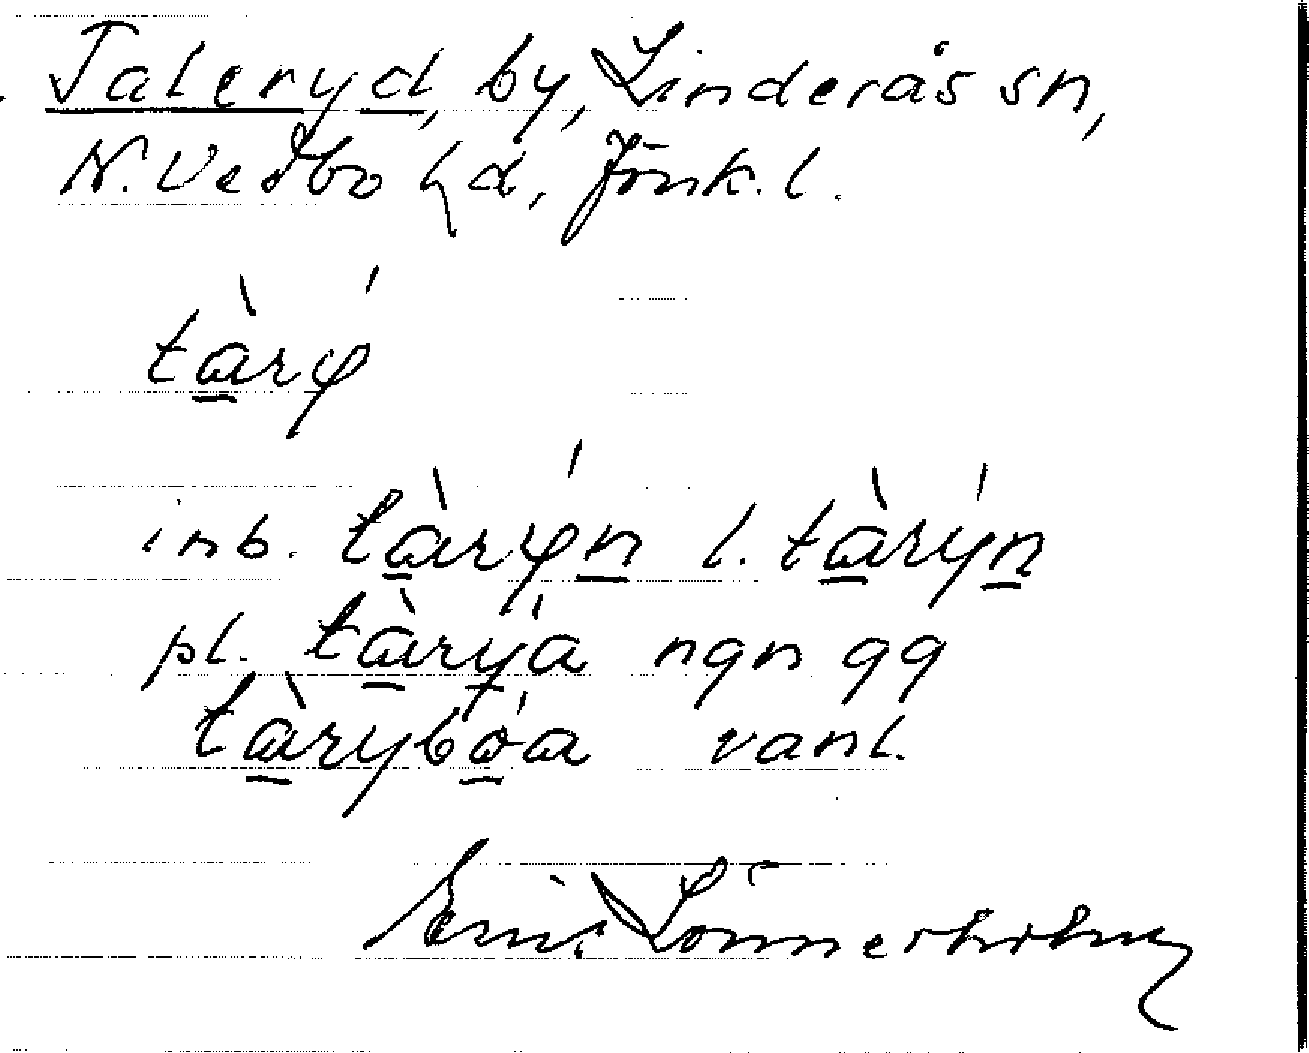 Taleryd, by, Linderås sn,
N. Vedbo hd, Jönk. l.
tàrý
inb. tàrýn l. tàrýn
pl. tàrýa ngn gg
tàrybóa vanl.
Linnerholm